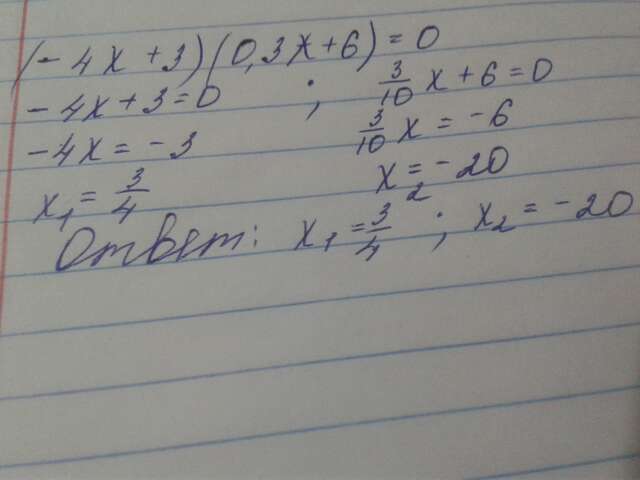 (- 4x + 3)(0,3x + 6) = 0
- 4x + 3 = 0 ; 3/10 x + 6 = 0
- 4x = - 3 3/10 x = - 6
x₁ = 3/4 x₂ = - 20
Ответ: x₁ = 3/4 ; x₂ = - 20